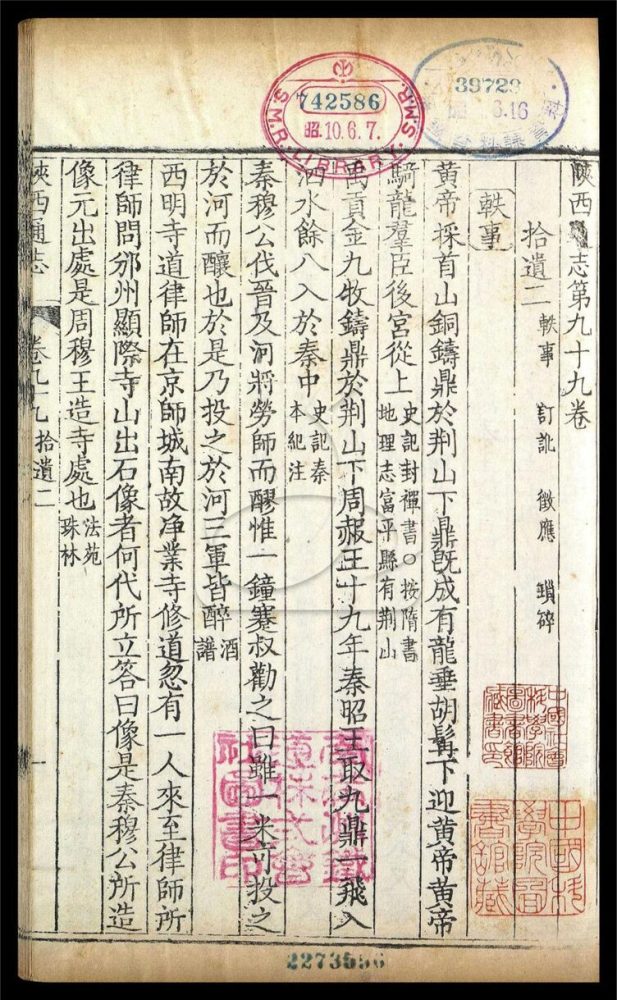 陜西通志第九十九卷
拾遺二 軼事 訂訛 徵應 瑣碎
軼事
黃帝採首山銅鑄鼎於荆山下鼎旣成有龍垂胡髯下迎黃帝黃帝
騎龍羣臣後宮從上 史記封禪書○按隋書
地理志富平縣有荆山
禹貢金九牧鑄鼎於荆山下周赧王十九年秦昭王取九鼎一飛入
泗水餘八入於秦中 史記秦
本紀注
秦穆公伐晉及河將勞師而醪惟一鐘蹇叔勸之曰雖一米可投之
於河而釀也於是乃投之於河三軍皆醉 酒
譜
西明寺道律師在京師城南故净業寺修道忽有一人來至律師所
律師問邠州顯際寺山出石像者何代所立答曰像是秦穆公所造
像元出處是周穆王造寺處也 法苑
珠林
陜西通志 卷九十九 拾遺二 一
S.M.R. LIBRARY. S.M.R.
742586
昭 10.6.7.
39729
6.16
中國社會
科學院
圖書館
藏書印
中國科
學院圖
書館藏
2273556